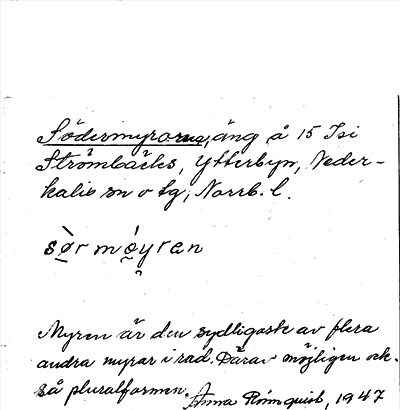 Södermyrorna, äng å 15 Isi
Strömbäcks, Ytterbyn, Neder-
kalix sn o tg, Norrb. l.
sø̀r mǿyren
Myren är den sydligaste av flera
andra myrar i rad. Därav möjligen ock-
så pluralformen. Anna Römquist, 1947